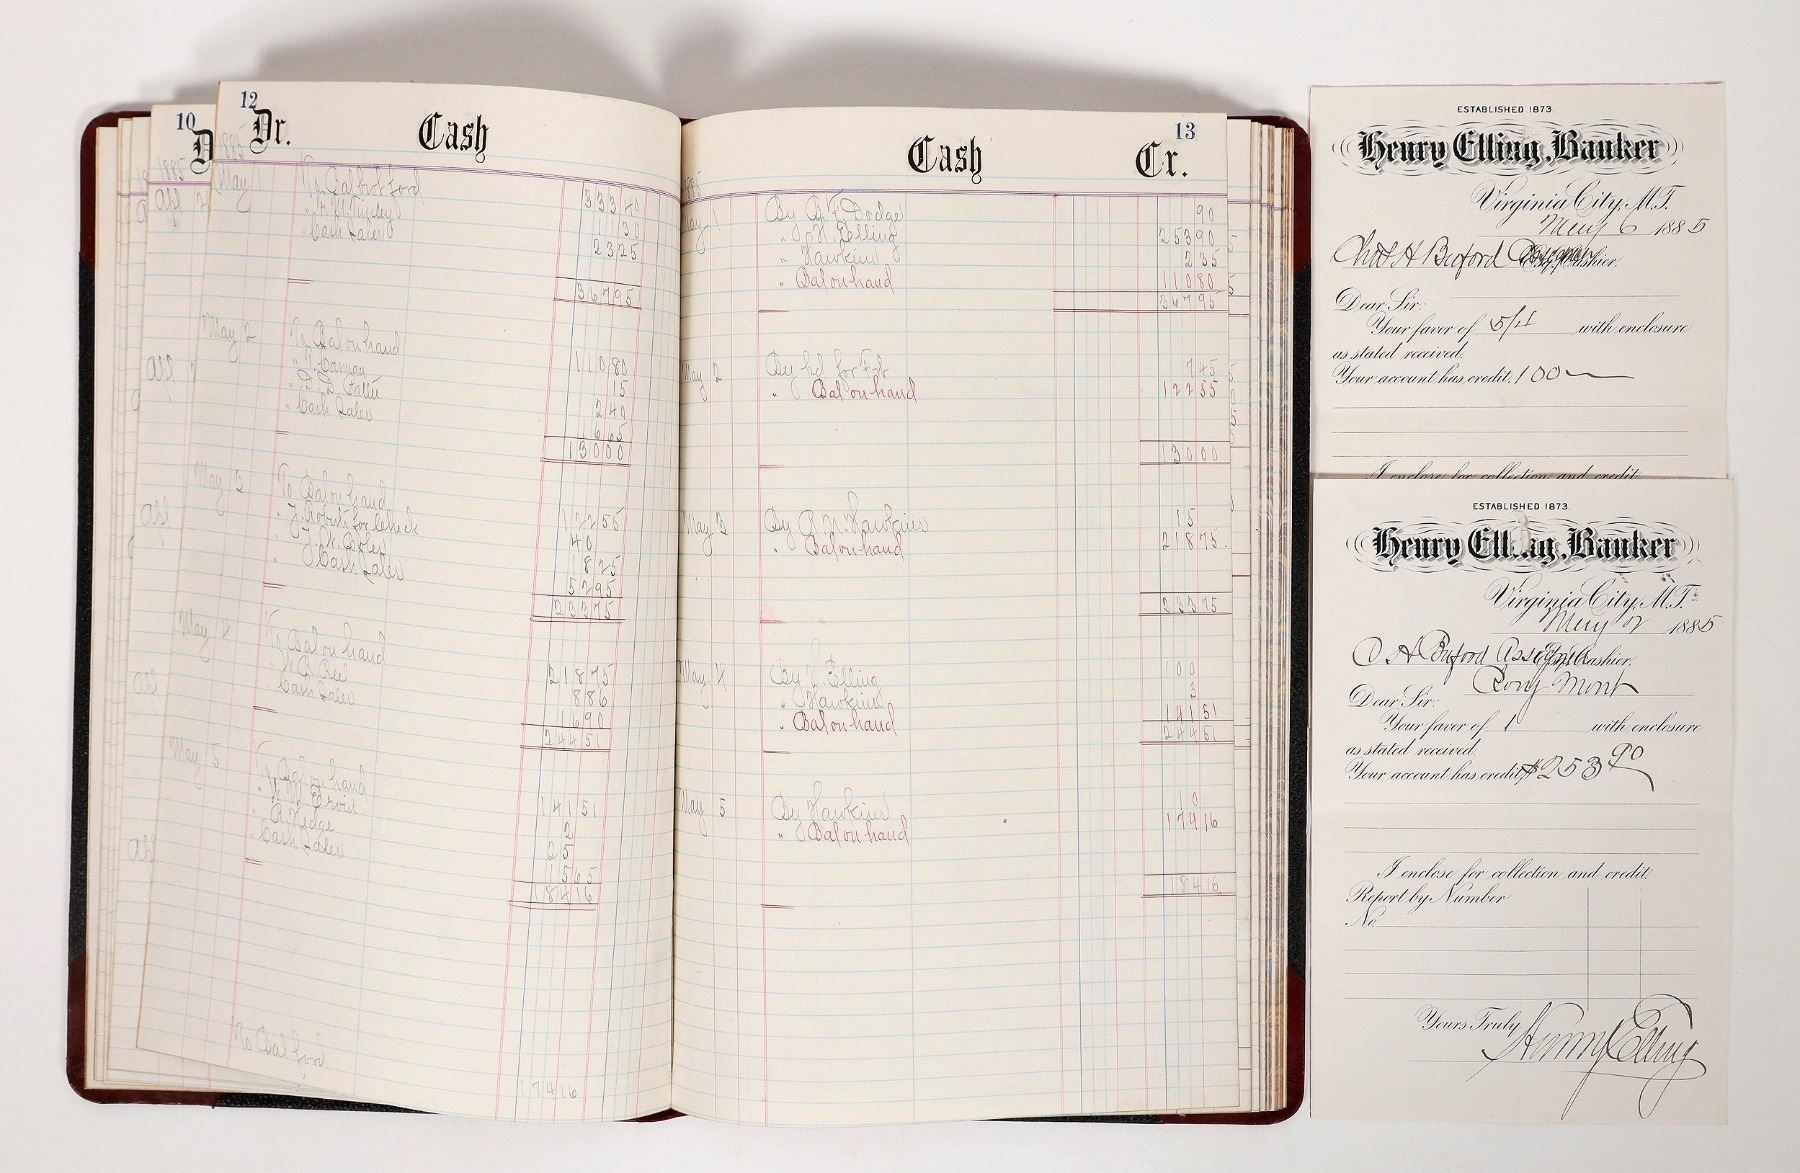 10
1885
12
Dr.
Cash
1885
May 1
To Bal brot ford
33340
1130
" Cash Sales
2325
36795
May 2
To Bal on hand
11080
15
240
" Cash Sales
1665
13000
May 3
To Bal on hand
12255
40
1825
" Cash Sales
5295
23375
May 4
To Bal on hand
21875
886
" Cash Sales
1690
24451
May 5
To Bal on hand
14151
2
25
" Cash Sales
1565
18416
To Bal ford
17416
13
Cash
Cr.
May 1
By B.F. Dodge
90
" H. Elling
25390
" Hawkins
235
" Bal on hand
11080
36795
May 2
By pd for Frt
745
" Bal on hand
12255
13000
May 3
By R. N. Hawkins
15
" Bal on hand
21875
23375
May 4
By H. Elling
100
" Hawkins
3
" Bal on hand
14151
24451
May 5
By Hawkins
10
" Bal on hand
17416
18416
ESTABLISHED 1873.
Henry Elling, Banker
Virginia City, M.T.
May 6 1885
Chas A Buford
Cashier.
Dear Sir:
Your favor of 5/4 with enclosure
as stated received.
Your account has credit, 100
I enclose for collection and credit
ESTABLISHED 1873.
Henry Elling, Banker
Virginia City, M.T.
May 2 1885
C A Buford Assignee Cashier.
Mont
Dear Sir:
Your favor of 1 with enclosure
as stated received.
Your account has credit, $253 90
I enclose for collection and credit
Report by Number
No.
Yours Truly
Henry Elling